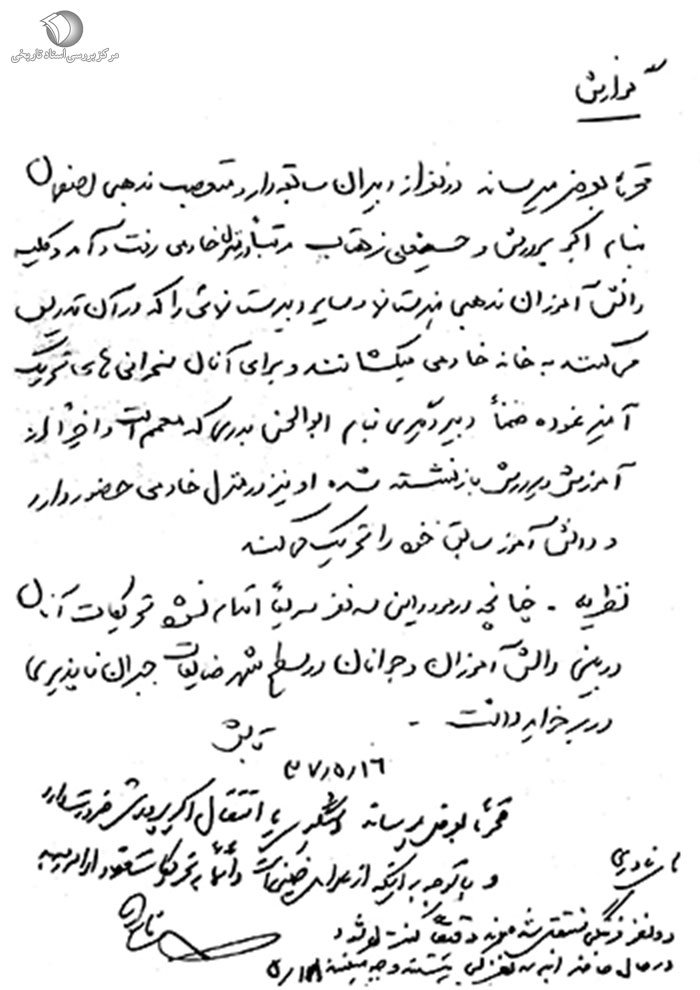 مرکز بررسی اسناد تاریخی
گزارش
محترماً بعرض میرساند دو نفر از دبیران سابقه دار و متعصب مذهبی اصفهان
بنام اکبر پرورش و حسینعلی زهتاب مرتباً در منزل خادمی رفت و آمد و کلیه
دانش آموزان مذهبی هنرستانها و سایر دبیرستانهائی را که در آن تدریس
می کنند به خانه خادمی میکشانند و برای آنان سخنرانی های تحریک
آمیز نموده ضمناً دبیر دیگری بنام ابوالحسن بدری که معمم است و اخیراً از
آموزش و پرورش بازنشسته شده او نیز در منزل خادمی حضور دارد
و دانش آموز سابق خود را تحریک می کند
نظریه - چنانچه در مورد این سه نفر سریعاً اقدام نشود تحریکات آنان
در بین دانش آموزان و جوانان در سطح شهر ضایعات جبران ناپذیری
در بر خواهد داشت -
تابش
۳۷/۵/۱۶
محترماً بعرض میرساند دستگیری یا انتقال اکبر پرورش ضرورت دارد
و با توجه به اینکه از عوامل خمینی است دائماً به تحریکات خود ادامه میدهد
نادری
آقای نادری
دو نفر فرهنگی منتقل شده دقیقاً کنترل شود
در حال حاضر
۵/۱۸